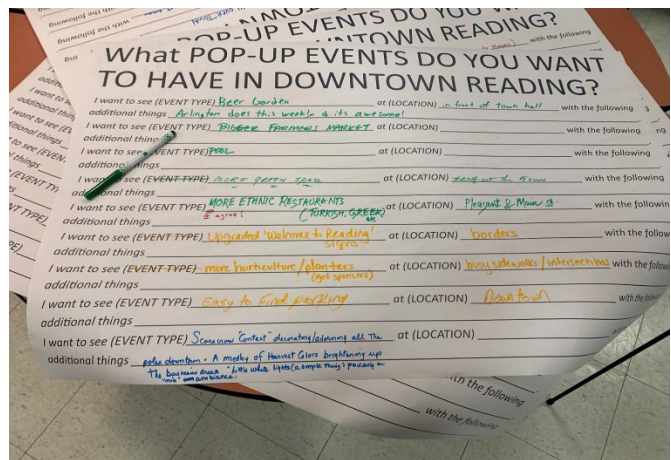 with the following
What POP-UP EVENTS DO YOU WANT
TO HAVE IN DOWNTOWN READING?
I want to see (EVENT TYPE) Beer Garden at (LOCATION) in front of town hall with the following
additional things Arlington does this weekly & its awesome!
I want to see (EVENT TYPE) BIGGER FARMERS MARKET at (LOCATION) with the following
additional things
I want to see (EVENT TYPE) POOL at (LOCATION) with the following
additional things
I want to see (EVENT TYPE) more green space at (LOCATION) with the following
additional things
I want to see (EVENT TYPE) MORE ETHNIC RESTAURANTS at (LOCATION) Pleasant & Main St. with the following
I agree! (TURKISH, GREEK etc
additional things
I want to see (EVENT TYPE) Upgraded 'Welcome to Reading' at (LOCATION) borders with the following
signs
additional things
I want to see (EVENT TYPE) more horticulture/planters at (LOCATION) busy sidewalks/intersections with the follow
(get sponsors)
additional things
I want to see (EVENT TYPE) Easy to Find parking at (LOCATION) Downtown with the
additional things
I want to see (EVENT TYPE) Scarecrow "Contest" decorating/adorning all The at (LOCATION)
additional things poles downtown. A medley of Harvest Colors brightening up
The business area. Little white lights
ambiance.
in the following
with the following